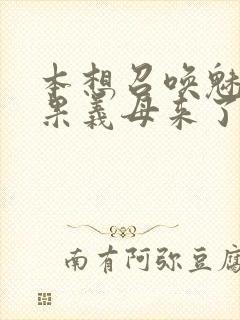 本想召唤魅
果义母来了
南有阿弥豆腐